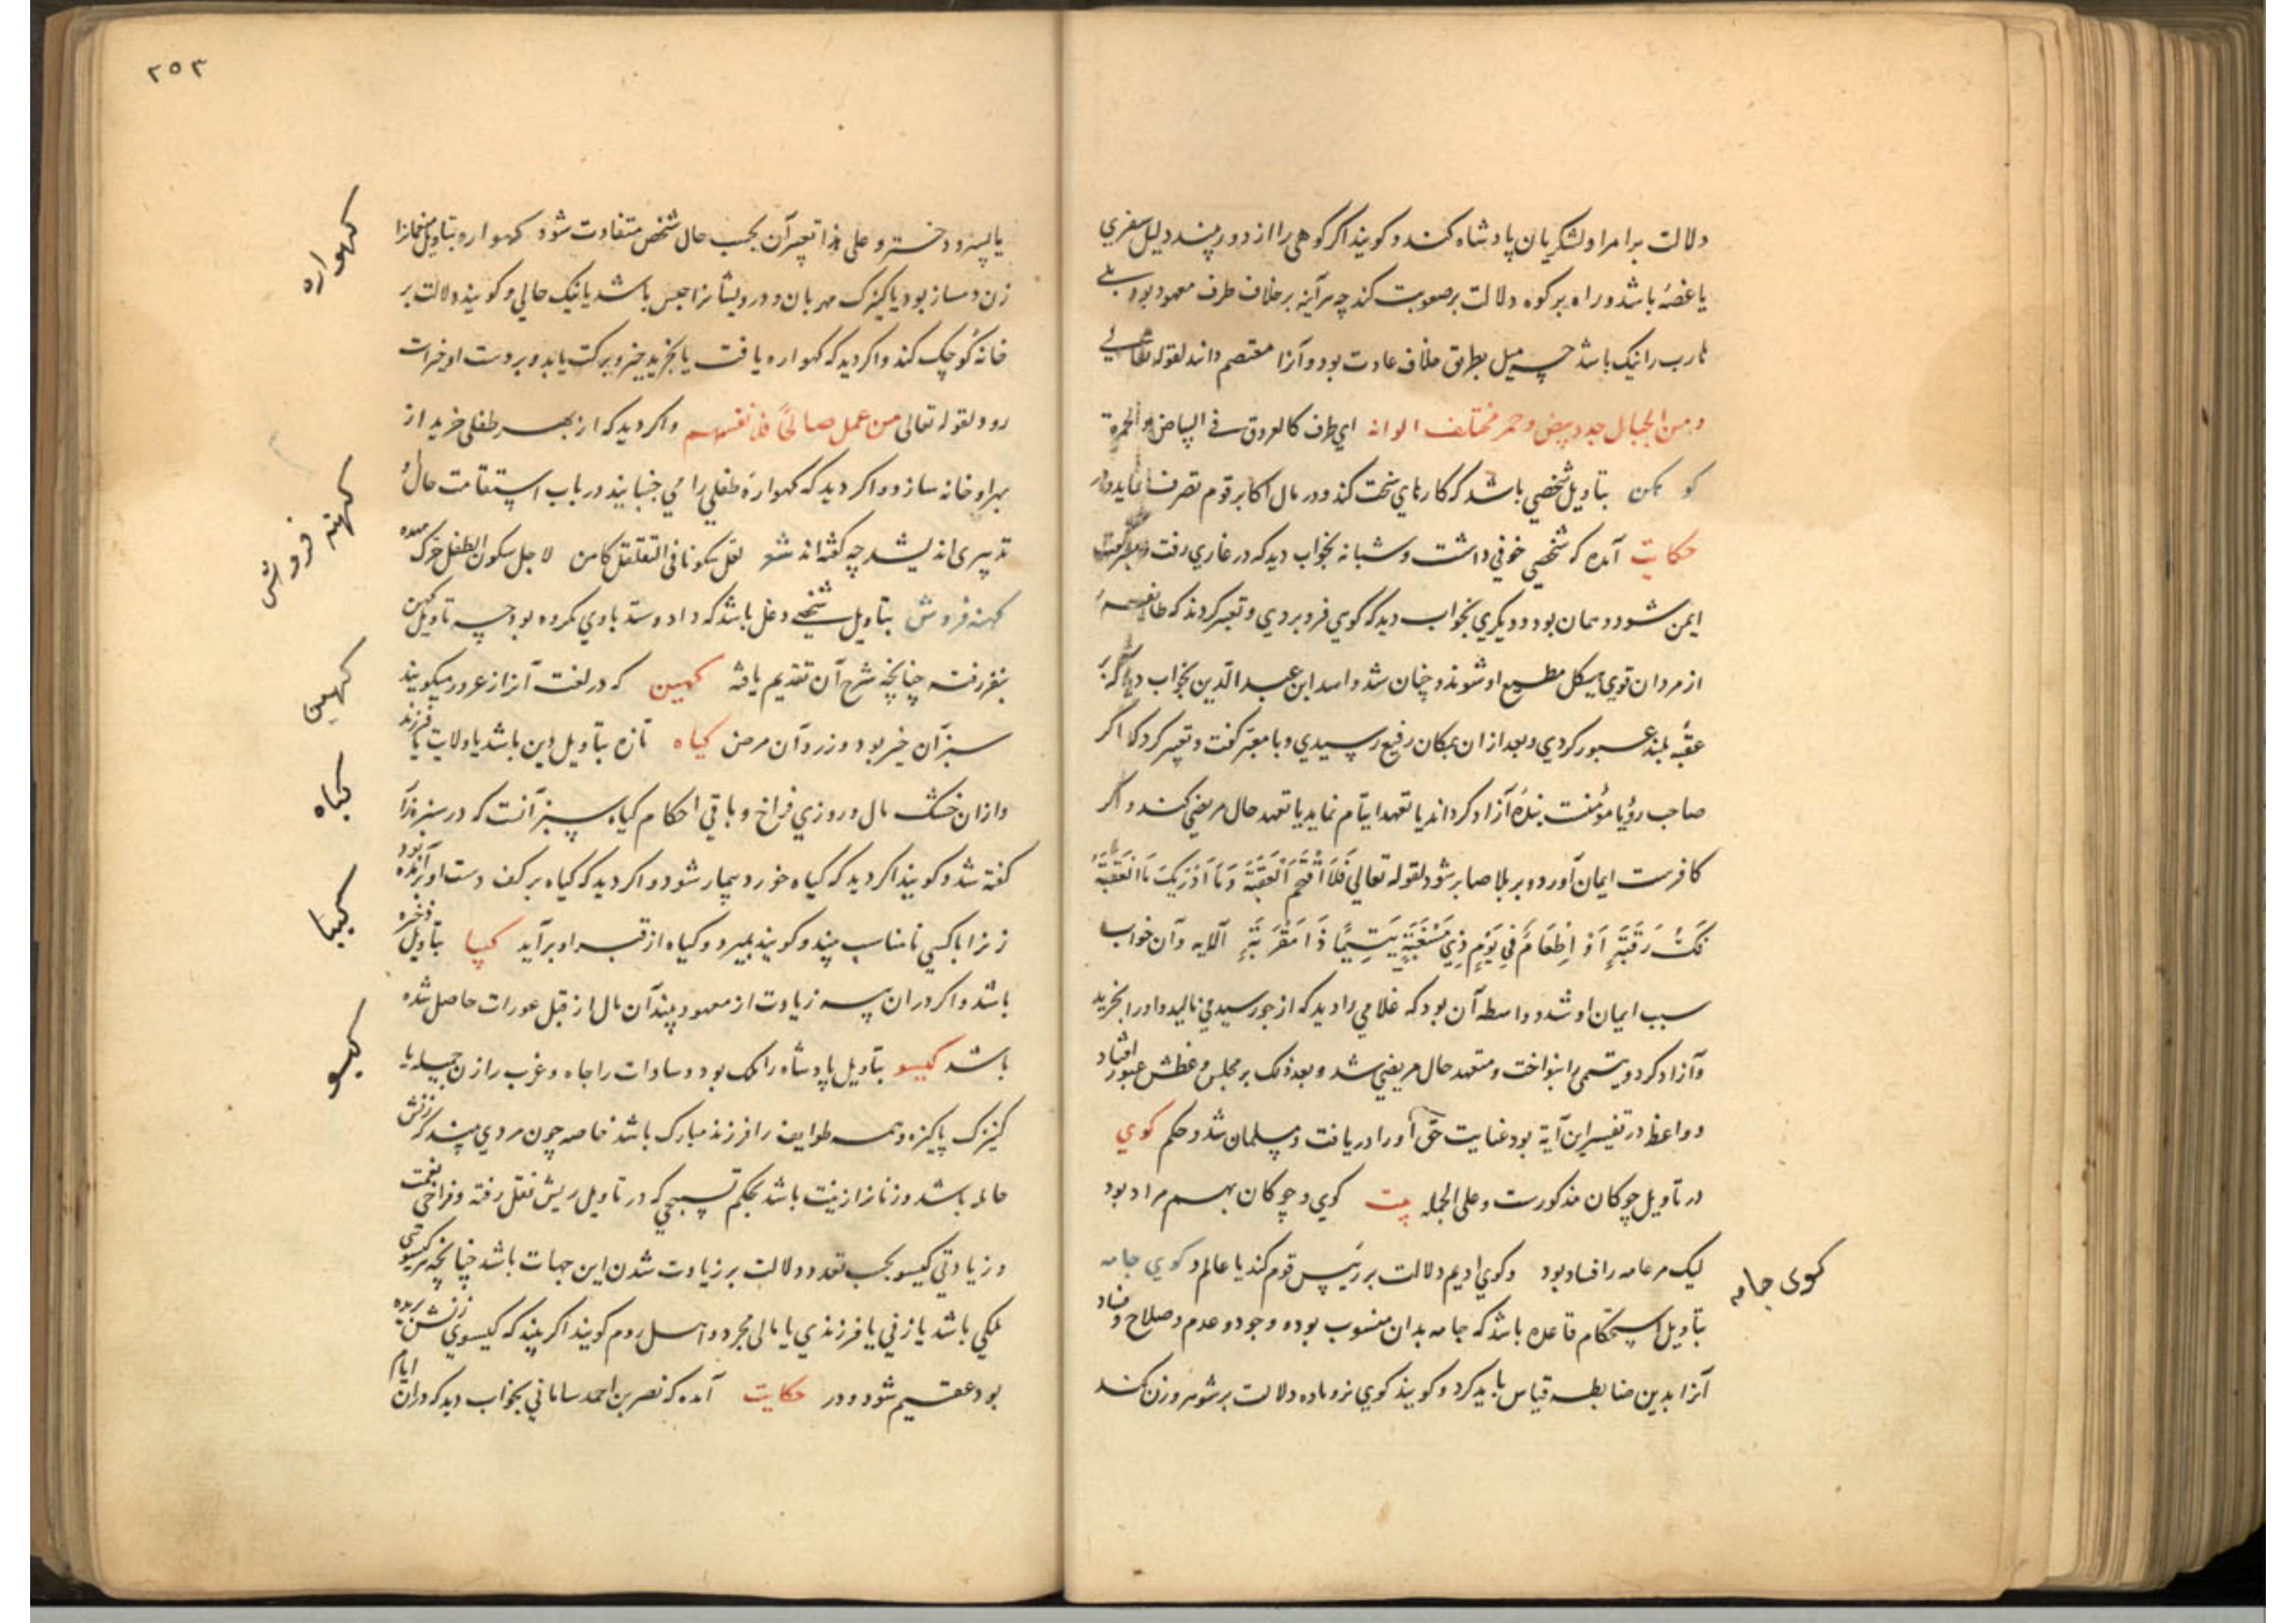 دلالت بر امرا و لشکریان پادشاه کند و کویند اکر کوهی را از دور بیند دلیل سفری
یا غصهٔ باشد و راه بر کوه دلالت بر صعوبت کند چه هر آینه بر خلاف طرف معهود بود بلی
هارب را نیک باشد چه میل بطرق خلاف عادت بود و آنرا معتصم داند لقوله تعالی
ومن الجبال جدد بیض وحمر مختلف الوانه ای طرف کالعروق فی البیاض والحمرة
کوه کن بتاویل شخصی باشد که کارهای سخت کند و در مال اکابر قوم تصرف نماید و در
حکایت آمده که شخصی خوفی داشت و شبانه بخواب دید که در غاری رفت
ایمن شود و همان بود و دیکری بخواب دید که کوهی فرو بردی و تعبیر کردند که طایفهٔ
از مردان قوی هیکل مطیع او شوند و چنان شد و اسد ابن عبد الدین بخواب دید که بر
عقبهٔ بلند عبور کردی و بعد از ان بمکان رفیع رسیدی و با معبر کفت و تعبیر کرد که اکر
صاحب رؤیا مؤمنست بندهٔ آزاد کرداند یا تعهد ایتام نماید یا تعهد حال مریضی کند و اکر
کافرست ایمان آورد و بر بلا صابر شود لقوله تعالی فَلَا اقْتَحَمَ الْعَقَبَةَ وَمَا اَدْرٰیكَ مَا الْعَقَبَةُ
فَكُّ رَقَبَةٍ اَوْ اِطْعَامٌ فِی یَوْمٍ ذِی مَسْغَبَةٍ یَتِیمًا ذَا مَقْرَبَةٍ الآیه و آن خواب
سبب ایمان او شد و واسطه آن بود که غلامی را دید که از جور سیدی می نالید و او را بخرید
و آزاد کرد و یتیمی را بنواخت و متعهد حال مریضی شد و بعد ذلک بر مجلس وعظش عبور افتاد
و واعظ در تفسیر این آیة بود عنایت حق او را دریافت و مسلمان شد و حکم کوی
در تاویل چوکان مذکورست و علی الجمله بیت کوی و چوکان بهم مراد بود
لیک مر عامه را فساد بود و کوی ادیم دلالت بر رئیس قوم کند یا عالم و کوی جامه
بتاویل استحکام قاعده باشد که جامه بدان منسوب بود و وجود و عدم و صلاح و فساد
آنرا بدین ضابطه قیاس باید کرد و کویند کوی نر و ماده دلالت بر شوهر و زن کند
کوی جامه
۲۵۳
یا پسر و دختر و علی هذا تعبیر آن بحسب حال شخص متفاوت شود کهواره بتاویل منعمانرا
زن دمساز بود یا کنیزک مهربان و درویشانرا حبس باشد یا نیک حالی و کویند دلالت بر
خانهٔ کوچک کند و اکر دید که کهواره یافت یا بخرید خیر و برکت یابد و بر دست او خیرات
رود لقوله تعالی من عمل صالحاً فلانفسهم و اکر دید که از بهر طفلی خرید از
بهر او خانه سازد و اکر دید که کهوارهٔ طفلی را می جنبانید در باب استقامت حال او
تدبیری اندیشد چه کفته اند شعر لقل سکونا فی التقلقل کامن لاجل سکون الطفل حرک مهده
کهنه فروش بتاویل شخصی دغل باشد که داد و ستد با وی مکروه بود چه تاویل کهن
بفقر رفته چنانچه شرح آن تقدیم یافته کهین که در لغت آنرا زعرور میکویند
سبز آن خیر بود و زرد آن مرض کیاه تازه بتاویل دین باشد یا ولایت یا فرزند
و از ان خشک مال و روزی فراخ و باقی احکام کیاه سبز آنست که در سبزه زار
کفته شد و کویند اکر دید که کیاه خورد بیمار شود و اکر دید که کیاه بر کف دست او
زنرا با کسی نامناسب بیند و کویند بمیرد و کیاه از قبر او برآید کیپا بتاویل ذخیره
باشد و اکر در ان پیه زیادت از معهود بیند آن مال از قبل عورات حاصل شده
باشد کیسو بتاویل پادشاه را ملک بود و سادات را جاه و عزب را زن جمیله یا
کنیزک پاکیزه و همه طوایف را فرزند مبارک باشد خاصه چون مردی بیند که زنش
حامله باشد و زنانرا زینت باشد بحکم تسبیحی که در تاویل ریش نقل رفته و فراخی نعمت
و زیادتی کیسو بحسب تعدد دلالت بر زیادت شدن این جهات باشد چنانچه هر کیسویی
ملکی باشد یا زنی یا فرزندی یا مالی مجرد و اهل روم کویند اکر بیند که کیسوی زنش بریده
بود عقیم شود و در حکایت آمده که نصر بن احمد سامانی بخواب دید که در ان ایام
کهواره
کهنه فروش
کهین
کیاه
کیپا
کیسو